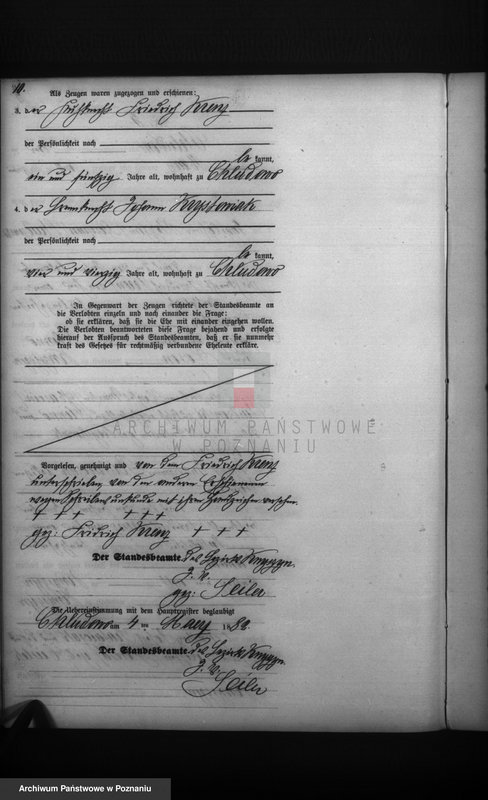 Als Zeugen waren zugezogen und erschienen:
3. der Friedrich Krenz
der Persönlichkeit nach
be kannt,
ein und fünfzig Jahre alt, wohnhaft zu Chludowo
4. der Johann Krystoniak
der Persönlichkeit nach
be kannt,
vier und vierzig Jahre alt, wohnhaft zu Chludowo
In Gegenwart der Zeugen richtete der Standesbeamte an
die Verlobten einzeln und nach einander die Frage:
ob sie erklären, daß sie die Ehe mit einander eingehen wollen.
Die Verlobten beantworteten diese Frage bejahend und erfolgte
hierauf der Ausspruch des Standesbeamten, daß er sie nunmehr
kraft des Gesetzes für rechtmäßig verbundene Eheleute erkläre.
ARCHIWUM PAŃSTWOWE
W POZNANIU
Vorgelesen, genehmigt und von dem Friedrich Krenz
unterschrieben, von den anderen Erschienenen
wegen Schreibensunkunde mit ihren Handzeichen versehen.
+ + + + + +
gez: Fridrich Krenz + + +
Der Standesbeamte des Bezirks
gez: Seiler
Die Uebereinstimmung mit dem Hauptregister beglaubigt
Chludowo am 4 ten 188
Der Standesbeamte des Bezirks
Seiler
Archiwum Państwowe w Poznaniu